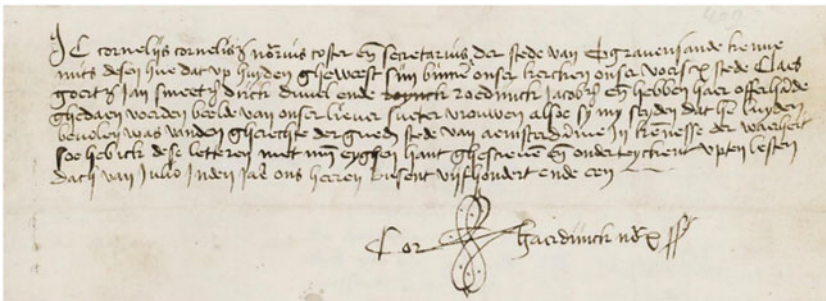 Ic cornelijs cornelisz not'rius coster en̄ secretarius der stede van tsgravensande kenne
mits desen hue dat up huyden gheweest sijn binnē onser kercken onser voirs stede Claes
goertz Jan smeetz dirck duvel ende roedinck jacobsz en̄ hebben haer offerhāde
ghedaen voerden beelde van onser liever sueter vrouwen alsoe sy my seyden dat hē luyden
bevolen was vanden gherechte der gueder stede van aemsterdāme In kēnesse der waerheit
soe heb ick dese letteren met mijn eyghen hant ghescreuē en̄ onderteyckent upten lesten
dach van Julio Inden jaer ons heeren dusent vijfhondert ende een
Cor haerdinck